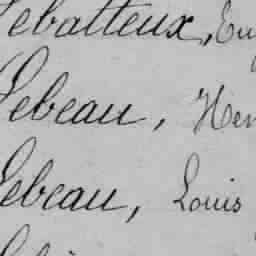 Lebatteux, Eu
Lebeau, Hen
Lebeau, Louis